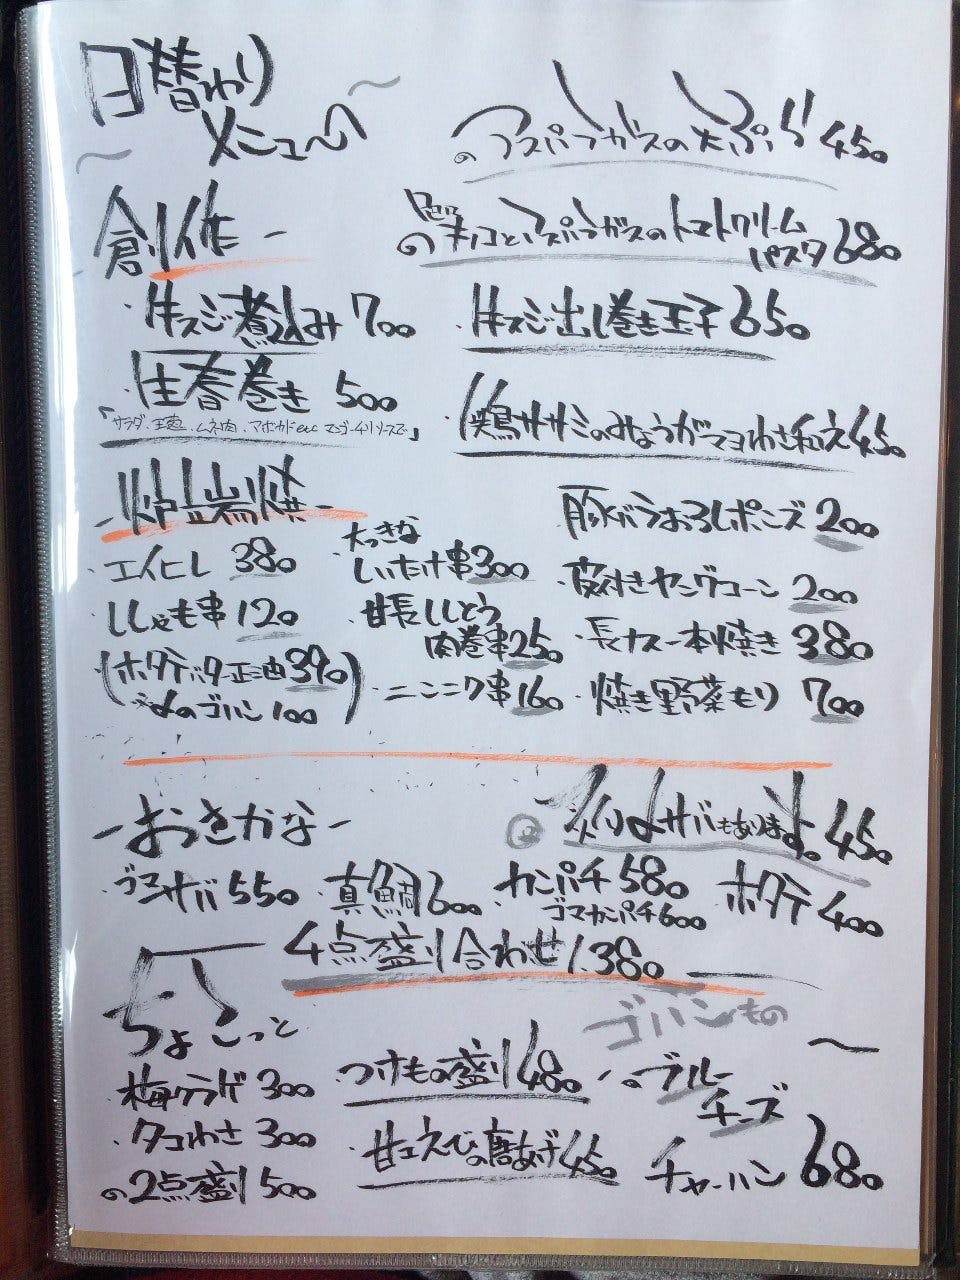 日替わり
メニュー
アスパラガスの天ぷら 450
創作
キノコとアスパラガスのトマトクリーム
パスタ 680
・牛スジ煮込み 700
・牛スジ出し巻き玉子 650
・生春巻き 500
「サラダ、玉葱、ムネ肉、アボカドetc マンゴーチリソースで」
・鶏ササミのみょうがマヨわさ和え 450
-炉端焼-
・エイヒレ 380
・ししゃも串 120
(ホタテバター正油 390)
〆のゴハン 100
大っきな
・しいたけ串 300
・甘長ししとう
肉巻串 250
・ニンニク串 160
豚バラおろしポン酢 200
・皮付きヤングコーン 200
・長ナス一本焼き 380
・焼き野菜もり 700
-おさかな-
炙り〆サバもあります。 450
ゴマサバ 550
・真鯛 600
・カンパチ 580
ゴマカンパチ 600
・ホタテ 400
4点盛り合わせ 1.380
ちょこっと
・梅クラゲ 300
・タコわさ 300
の2点盛り 500
・つけもの盛り 480
・甘エビの唐あげ 450
ゴハンもの
ブルー
チーズ
チャーハン 680